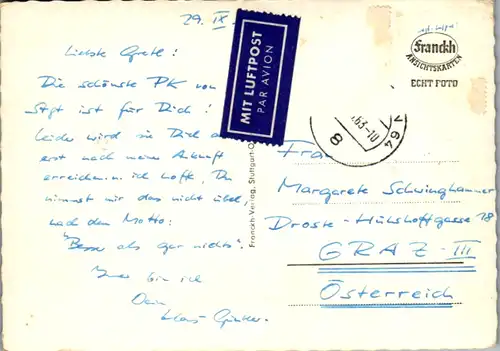 29. IX.
Liebste Gretl!
Die schönste PK von
Stgt ist für Dich!
Leider wird sie Dich
erst nach meiner Ankunft
erreichen. ich hoffe, Du
nimmst mir das nicht übel,
nach dem Motto:
"Besser als gar nichts".
bin ich
Dein
Klaus Günter.
MIT LUFTPOST
PAR AVION
Franckh-Verlag, Stuttgart-O
Franckh
ANSICHTSKARTEN
ECHT FOTO
.63-10
8
Frau
Margarete Schwinghammer
Droste-Hülshoffgasse 18
GRAZ-III
Österreich